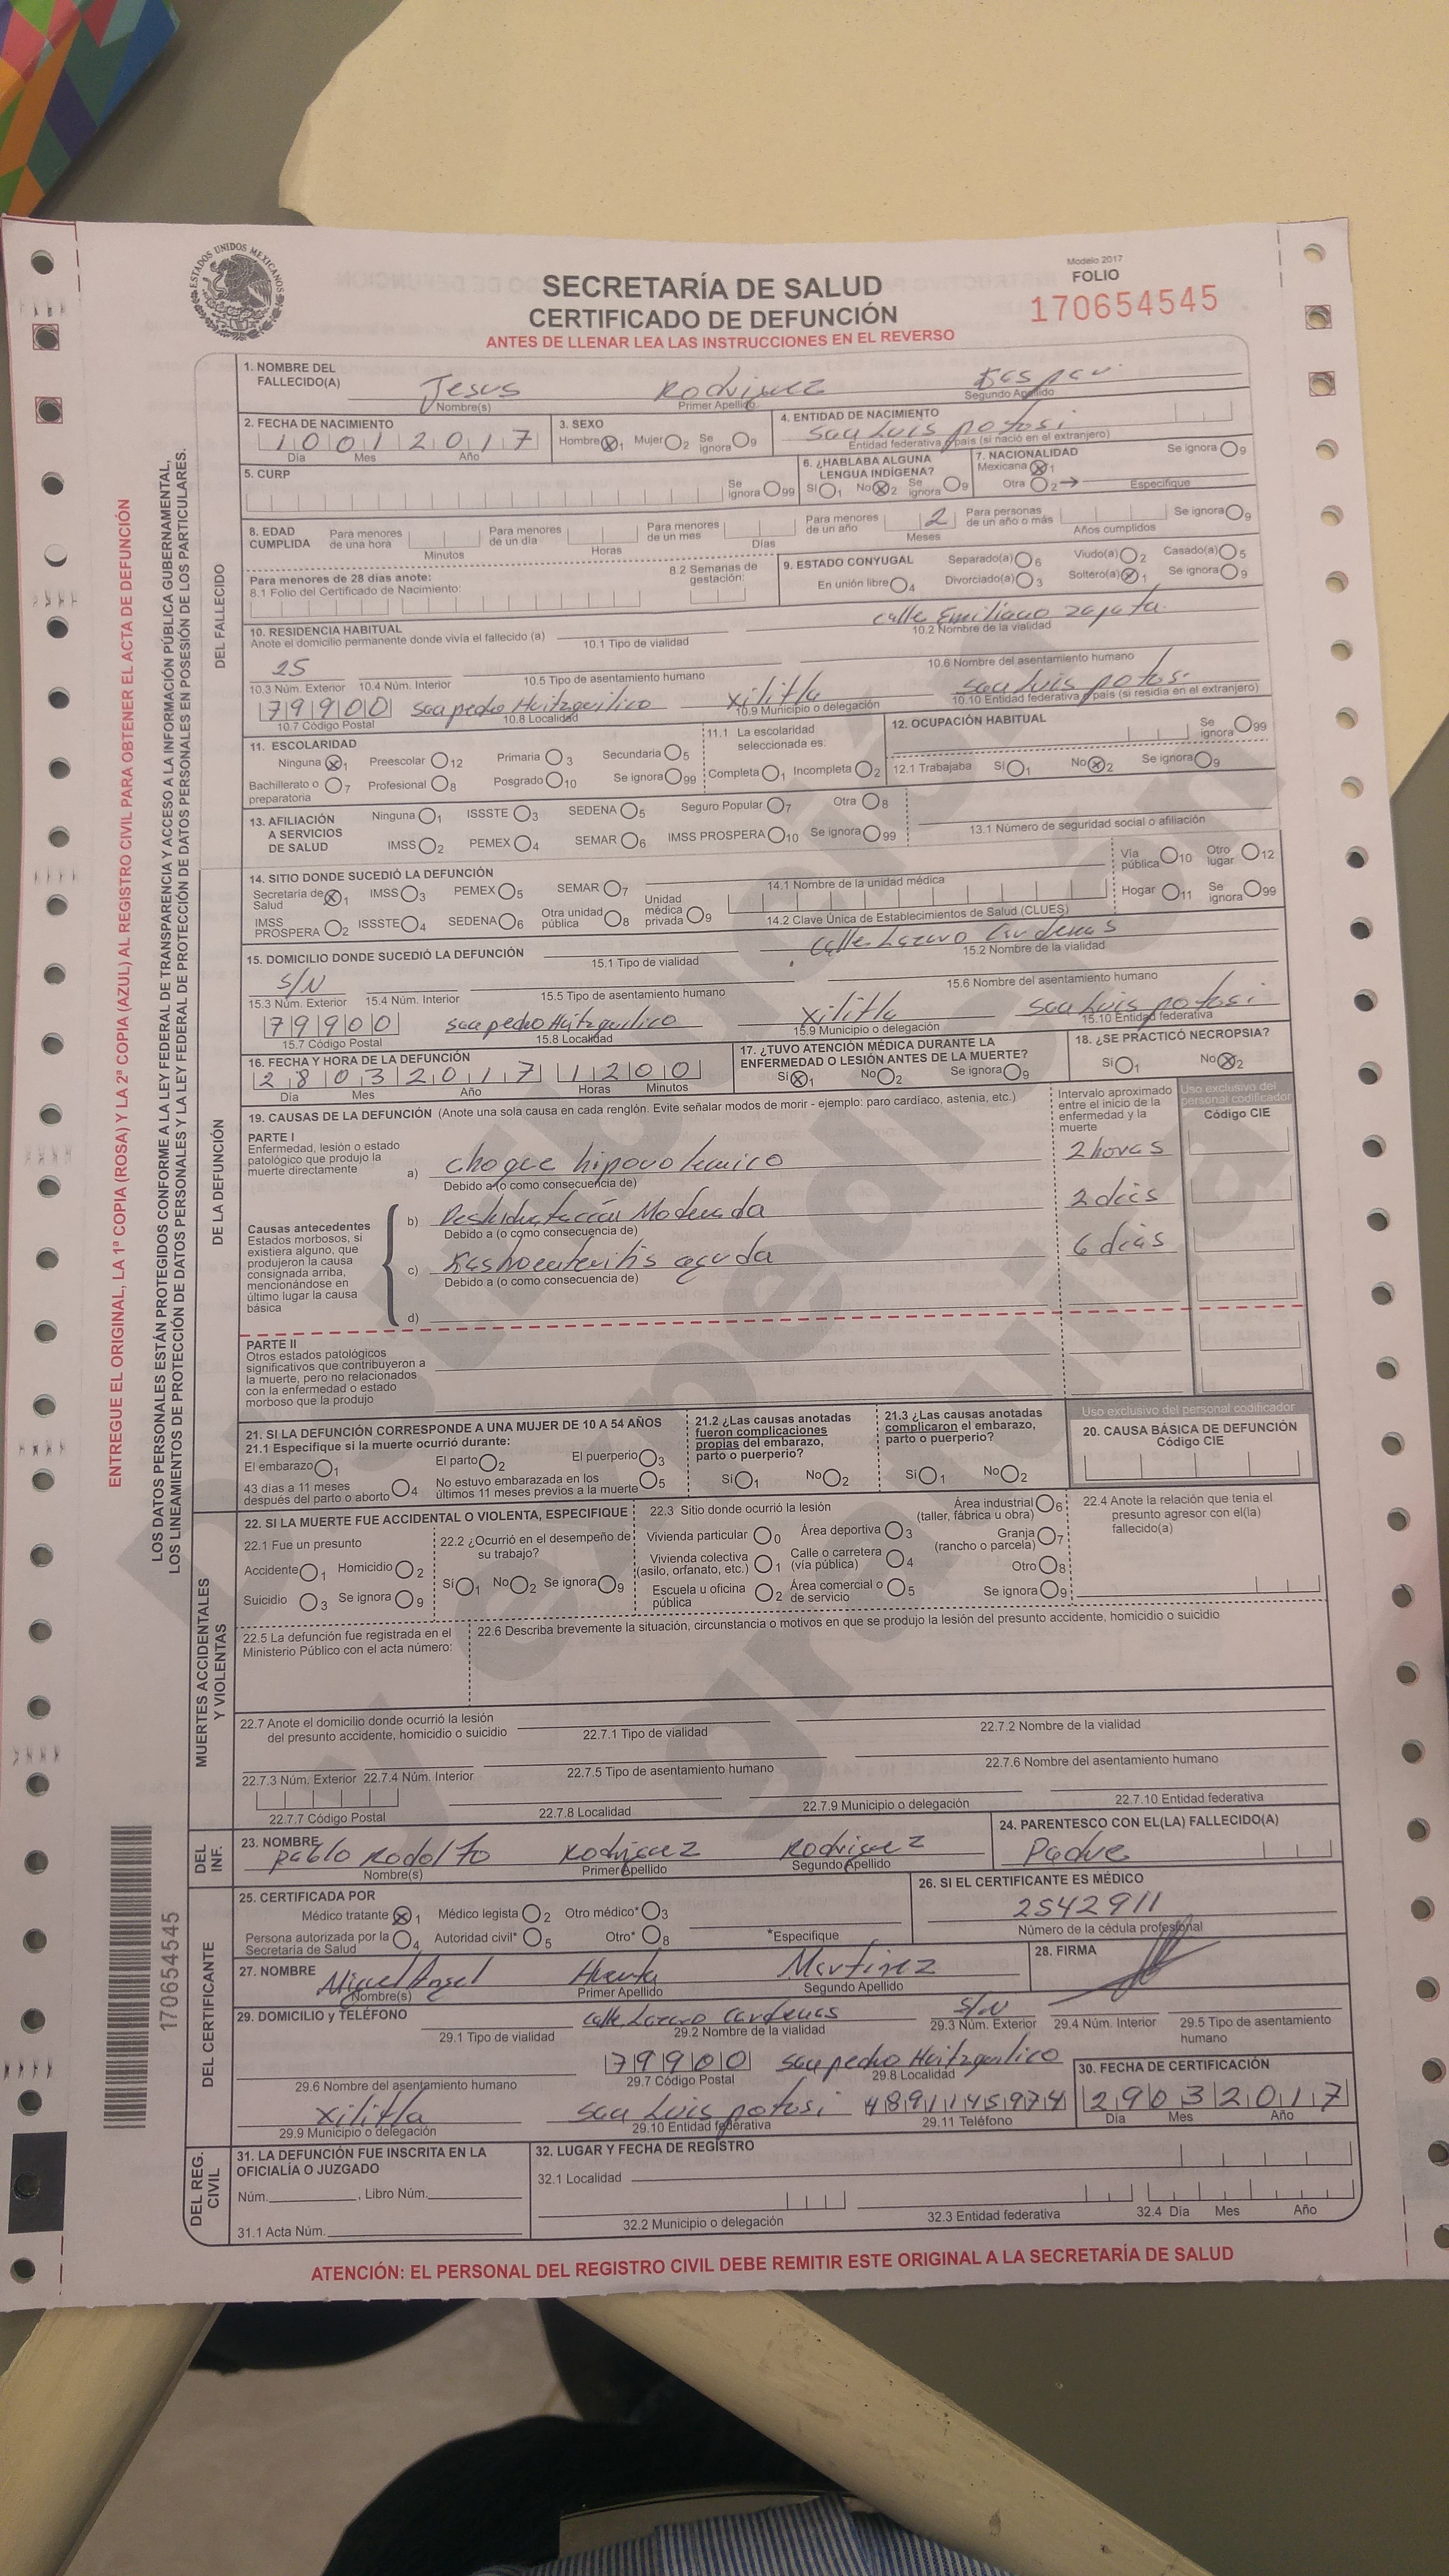 ESTADOS UNIDOS MEXICANOS
SECRETARÍA DE SALUD
CERTIFICADO DE DEFUNCIÓN
ANTES DE LLENAR LEA LAS INSTRUCCIONES EN EL REVERSO
Modelo 2017
FOLIO
170654545
ENTREGUE EL ORIGINAL, LA 1ª COPIA (ROSA) Y LA 2ª COPIA (AZUL) AL REGISTRO CIVIL PARA OBTENER EL ACTA DE DEFUNCIÓN
LOS DATOS PERSONALES ESTÁN PROTEGIDOS CONFORME A LA LEY FEDERAL DE TRANSPARENCIA Y ACCESO A LA INFORMACIÓN PÚBLICA GUBERNAMENTAL,
LOS LINEAMIENTOS DE PROTECCIÓN DE DATOS PERSONALES Y LA LEY FEDERAL DE PROTECCIÓN DE DATOS PERSONALES EN POSESIÓN DE LOS PARTICULARES.
DEL FALLECIDO
1. NOMBRE DEL FALLECIDO(A) Jesus Rodriguez
Nombre(s) Primer Apellido Segundo Apellido
2. FECHA DE NACIMIENTO 10 01 2017
Día Mes Año
3. SEXO
Hombre 1 Mujer 2 Se ignora 9
4. ENTIDAD DE NACIMIENTO
san Luis potosi
Entidad federativa o país (si nació en el extranjero)
5. CURP
Se ignora 99
6. ¿HABLABA ALGUNA LENGUA INDÍGENA?
Sí 1 No 2 Se ignora 9
7. NACIONALIDAD
Mexicana 1 Se ignora 9
Otra 2 Especifique
8. EDAD CUMPLIDA
Para menores de una hora Minutos
Para menores de un día Horas
Para menores de un mes Días
Para menores de un año 2 Meses
Para personas de un año o más Años cumplidos
Se ignora 9
Para menores de 28 días anote:
8.1 Folio del Certificado de Nacimiento:
8.2 Semanas de gestación:
9. ESTADO CONYUGAL Separado(a) 6 Viudo(a) 2 Casado(a) 5
En unión libre 4 Divorciado(a) 3 Soltero(a) 1 Se ignora 9
10. RESIDENCIA HABITUAL
Anote el domicilio permanente donde vivía el fallecido (a)
calle Emiliano zapata
10.1 Tipo de vialidad 10.2 Nombre de la vialidad
25
10.3 Núm. Exterior 10.4 Núm. Interior 10.5 Tipo de asentamiento humano 10.6 Nombre del asentamiento humano
79900 san pedro Huitzquilico xilitla san Luis potosi
10.7 Código Postal 10.8 Localidad 10.9 Municipio o delegación 10.10 Entidad federativa o país (si residía en el extranjero)
11. ESCOLARIDAD
Ninguna 1 Preescolar 12 Primaria 3 Secundaria 5
Bachillerato o preparatoria 7 Profesional 8 Posgrado 10 Se ignora 99
11.1 La escolaridad seleccionada es:
Completa 1 Incompleta 2
12. OCUPACIÓN HABITUAL
Se ignora 99
12.1 Trabajaba Sí 1 No 2 Se ignora 9
13. AFILIACIÓN A SERVICIOS DE SALUD
Ninguna 1 ISSSTE 3 SEDENA 5 Seguro Popular 7 Otra 8
IMSS 2 PEMEX 4 SEMAR 6 IMSS PROSPERA 10 Se ignora 99
13.1 Número de seguridad social o afiliación
DE LA DEFUNCIÓN
14. SITIO DONDE SUCEDIÓ LA DEFUNCIÓN
Secretaría de Salud 1 IMSS 3 PEMEX 5 SEMAR 7
IMSS PROSPERA 2 ISSSTE 4 SEDENA 6 Otra unidad pública 8 Unidad médica privada 9
14.1 Nombre de la unidad médica
14.2 Clave Única de Establecimientos de Salud (CLUES)
Vía pública 10 Otro lugar 12
Hogar 11 Se ignora 99
15. DOMICILIO DONDE SUCEDIÓ LA DEFUNCIÓN calle Lazaro Cardenas
15.1 Tipo de vialidad 15.2 Nombre de la vialidad
S/N
15.3 Núm. Exterior 15.4 Núm. Interior 15.5 Tipo de asentamiento humano 15.6 Nombre del asentamiento humano
79900 san pedro Huitzquilico xilitla san Luis potosi
15.7 Código Postal 15.8 Localidad 15.9 Municipio o delegación 15.10 Entidad federativa
16. FECHA Y HORA DE LA DEFUNCIÓN
28 03 2017 12 00
Día Mes Año Horas Minutos
17. ¿TUVO ATENCIÓN MÉDICA DURANTE LA ENFERMEDAD O LESIÓN ANTES DE LA MUERTE?
Sí 1 No 2 Se ignora 9
18. ¿SE PRACTICÓ NECROPSIA?
Sí 1 No 2
19. CAUSAS DE LA DEFUNCIÓN (Anote una sola causa en cada renglón. Evite señalar modos de morir - ejemplo: paro cardíaco, astenia, etc.)
Intervalo aproximado entre el inicio de la enfermedad y la muerte
Uso exclusivo del personal codificador
Código CIE
PARTE I
Enfermedad, lesión o estado patológico que produjo la muerte directamente
a) choque hipovolemico 2 horas
Debido a (o como consecuencia de)
Causas antecedentes
Estados morbosos, si existiera alguno, que produjeron la causa consignada arriba, mencionándose en último lugar la causa básica
b) Deshidratación Moderada 2 dias
Debido a (o como consecuencia de)
c) Gastroenteritis aguda 6 dias
Debido a (o como consecuencia de)
d)
PARTE II
Otros estados patológicos significativos que contribuyeron a la muerte, pero no relacionados con la enfermedad o estado morboso que la produjo
21. SI LA DEFUNCIÓN CORRESPONDE A UNA MUJER DE 10 A 54 AÑOS
21.1 Especifique si la muerte ocurrió durante:
El embarazo 1 El parto 2 El puerperio 3
43 días a 11 meses después del parto o aborto 4 No estuvo embarazada en los últimos 11 meses previos a la muerte 5
21.2 ¿Las causas anotadas fueron complicaciones propias del embarazo, parto o puerperio?
Sí 1 No 2
21.3 ¿Las causas anotadas complicaron el embarazo, parto o puerperio?
Sí 1 No 2
Uso exclusivo del personal codificador
20. CAUSA BÁSICA DE DEFUNCIÓN
Código CIE
MUERTES ACCIDENTALES Y VIOLENTAS
22. SI LA MUERTE FUE ACCIDENTAL O VIOLENTA, ESPECIFIQUE
22.1 Fue un presunto
Accidente 1 Homicidio 2
Suicidio 3 Se ignora 9
22.2 ¿Ocurrió en el desempeño de su trabajo?
Sí 1 No 2 Se ignora 9
22.3 Sitio donde ocurrió la lesión
Vivienda particular 0 Área deportiva 3 Área industrial (taller, fábrica u obra) 6
Vivienda colectiva (asilo, orfanato, etc.) 1 Calle o carretera (vía pública) 4 Granja (rancho o parcela) 7
Escuela u oficina pública 2 Área comercial o de servicio 5 Otro 8
Se ignora 9
22.4 Anote la relación que tenía el presunto agresor con el(la) fallecido(a)
22.5 La defunción fue registrada en el Ministerio Público con el acta número:
22.6 Describa brevemente la situación, circunstancia o motivos en que se produjo la lesión del presunto accidente, homicidio o suicidio
22.7 Anote el domicilio donde ocurrió la lesión del presunto accidente, homicidio o suicidio
22.7.1 Tipo de vialidad 22.7.2 Nombre de la vialidad
22.7.3 Núm. Exterior 22.7.4 Núm. Interior 22.7.5 Tipo de asentamiento humano 22.7.6 Nombre del asentamiento humano
22.7.7 Código Postal 22.7.8 Localidad 22.7.9 Municipio o delegación 22.7.10 Entidad federativa
DEL INF.
23. NOMBRE Pablo Rodolfo Rodriguez Rodriguez
Nombre(s) Primer Apellido Segundo Apellido
24. PARENTESCO CON EL(LA) FALLECIDO(A)
Padre
DEL CERTIFICANTE
25. CERTIFICADA POR
Médico tratante 1 Médico legista 2 Otro médico* 3
Persona autorizada por la Secretaría de Salud 4 Autoridad civil* 5 Otro* 8 *Especifique
26. SI EL CERTIFICANTE ES MÉDICO
2542911
Número de la cédula profesional
27. NOMBRE Miguel Angel Huerta Martinez
Nombre(s) Primer Apellido Segundo Apellido
28. FIRMA
29. DOMICILIO y TELÉFONO calle Lazaro Cardenas S/N
29.1 Tipo de vialidad 29.2 Nombre de la vialidad 29.3 Núm. Exterior 29.4 Núm. Interior 29.5 Tipo de asentamiento humano
79900 san pedro Huitzquilico
29.6 Nombre del asentamiento humano 29.7 Código Postal 29.8 Localidad
xilitla san Luis potosi 4891145974
29.9 Municipio o delegación 29.10 Entidad federativa 29.11 Teléfono
30. FECHA DE CERTIFICACIÓN
29 03 2017
Día Mes Año
DEL REG. CIVIL
31. LA DEFUNCIÓN FUE INSCRITA EN LA OFICIALÍA O JUZGADO
Núm. , Libro Núm.
31.1 Acta Núm.
32. LUGAR Y FECHA DE REGISTRO
32.1 Localidad
32.2 Municipio o delegación 32.3 Entidad federativa 32.4 Día Mes Año
170654545
ATENCIÓN: EL PERSONAL DEL REGISTRO CIVIL DEBE REMITIR ESTE ORIGINAL A LA SECRETARÍA DE SALUD
Distribución y expedición gratuita